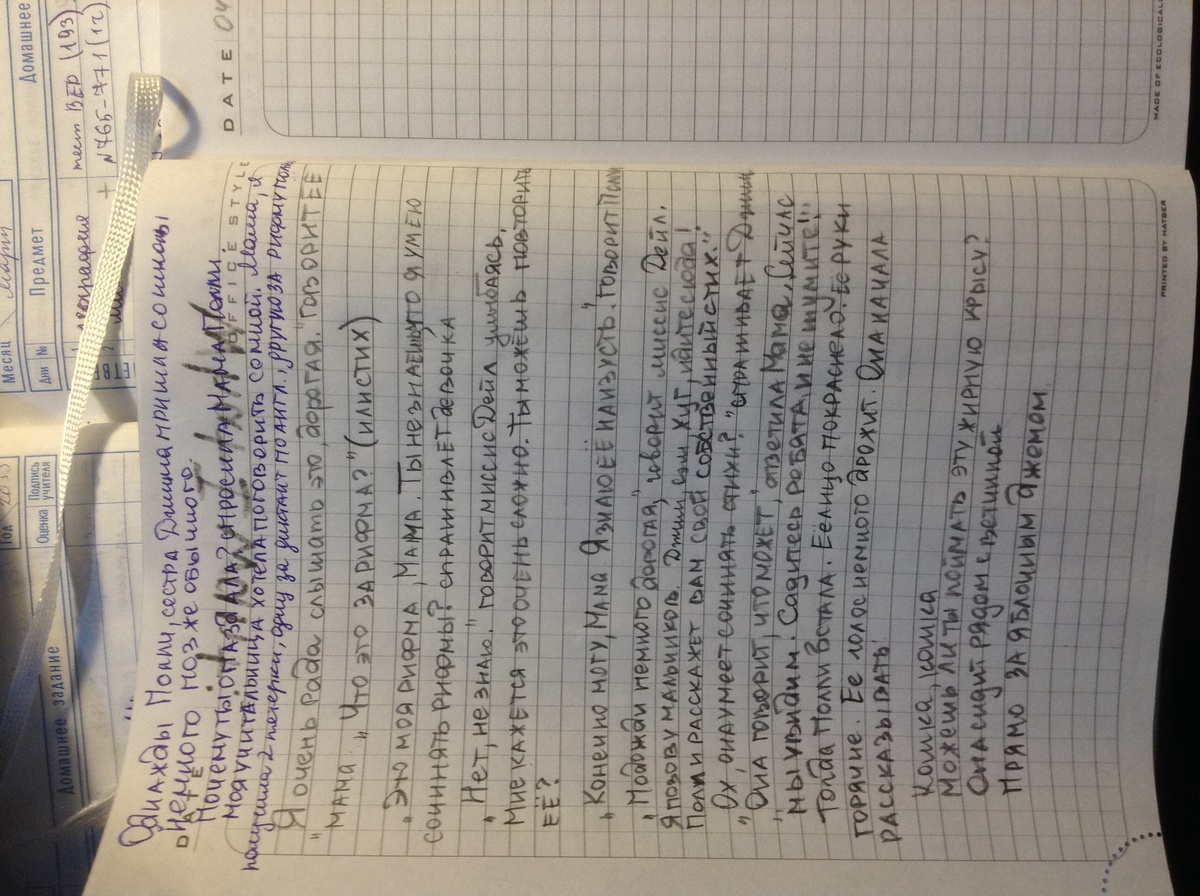 Однажды Молли, сестра Джима пришла со школы
Немного позже обычного.
Почему ты опаздала? спросила мама Полли
Моя учительница хотела поговорить со мной. Мама, я
получила 2 пятерки, одну за диктант по англ., другую за рифму
Я очень рада слышать это, дорогая." говорит ЕЁ
мама " Что это за рифма?" (или стих)
"Это моя рифма, мама. Ты не знаешь, что я умею
сочинять рифмы? спрашивает девочка
"Нет, не знаю." говорит миссис Дейл улыбаясь.
Мне кажется это очень сложно. Ты можешь повторить
ЕЁ?
"Конечно могу, мама Я знаю её наизусть." говорит Полли
"Подожди немного дорогая," говорит миссис Дейл.
Я позову мальчиков. Джим, Сэм Хуг, идите сюда!
Полли расскажет вам свой собственный стих."
"Ох, она умеет сочинять стихи?" спрашивает Джим
"Она говорит, что может," ответила Мама, Сейчас
мы увидим. Садитесь ребята и не шумите!"
Тогда Полли встала. Ее лицо покраснело. Её руки
горячие. Ее голос немного дрожит. Она начала
рассказывать
Кошка, кошка
Можешь ли ты поймать эту жирную крысу?
Она сидит рядом с ветчиной
Прямо за яблочным джемом
DATE
OFFICE STYLE
PRINTED BY HATBER
DATE 04
MADE OF ECOLOGICAL
Месяц Март
Дни №
Предмет
Домашнее
География
тест ВЕР (193)
+ №765-771 (12)
Домашнее задание
Оценка
Подпись учителя